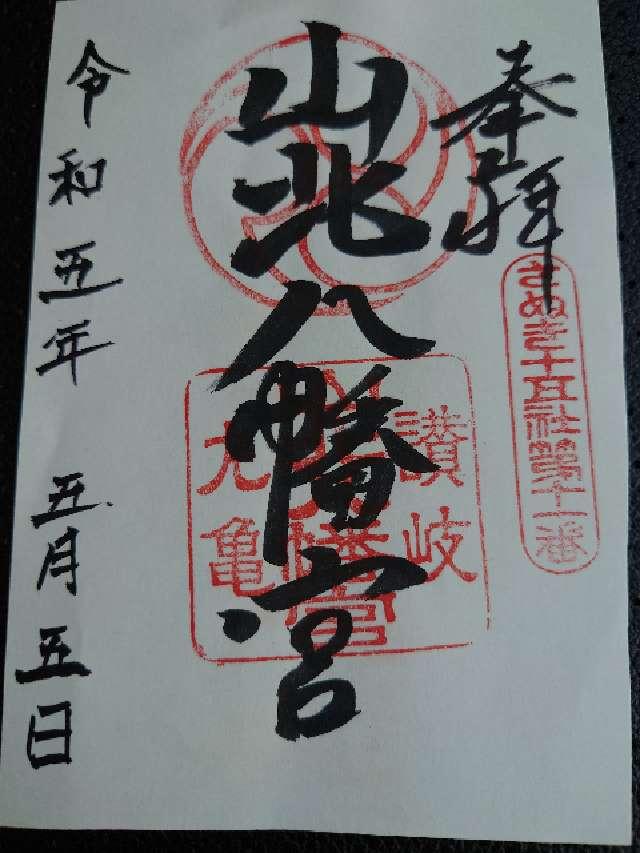 奉拝
さぬき十五社第十一番
山北八幡宮
讃岐
山北八幡宮
丸亀
令和五年 五月五日